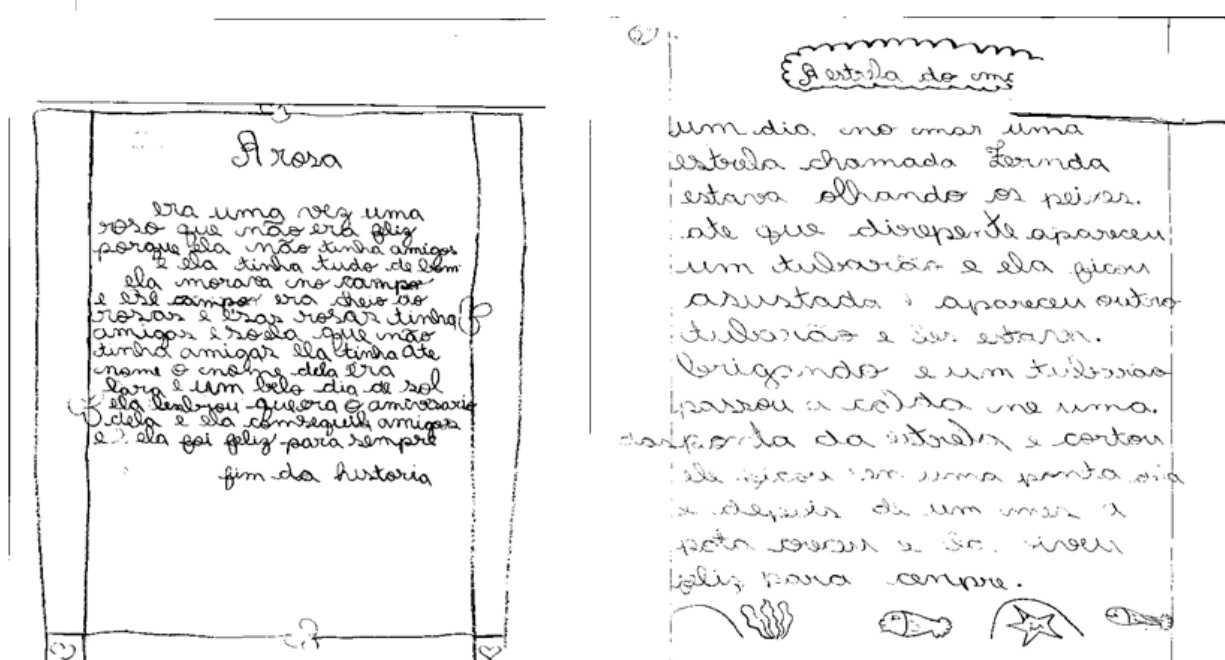 A rosa
era uma vez uma
roso que não era feliz
porque ela não tinha amigos
e ela tinha tudo de bom
ela morava no campo
e ese campo era cheio do
rosas e esas rosas tinha
amigas e soela que não
tinha amigas ela tinha ate
nome o nome dela era
lara e um belo dia de sol
ela lenbrou que era o aniversario
dela e ela conseguiu amigas
e ela foi feliz para sempre
fim da historia
A estrela do
um dia no mar uma
estrela chamada
estava olhando os peixes.
ate que direpente apareceu
um tubarão e ela ficou
asustada apareceu outro
tubarão e
brigando e um tubarão
passou a me uma.
ponta da estrela e cortou
uma ponta
e depois de um mes a
e
feliz para cenpre.